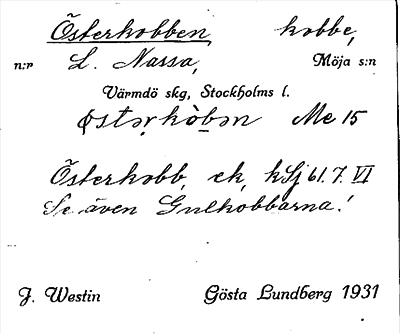 Österkobben kobbe,
n:r L. Nassa, Möja s:n
Värmdö skg, Stockholms l.
østərkòbən Me 15
Österkobb, ek, kSj 61.7. VI
Se även Gulkobbarna!
J. Westin Gösta Lundberg 1931